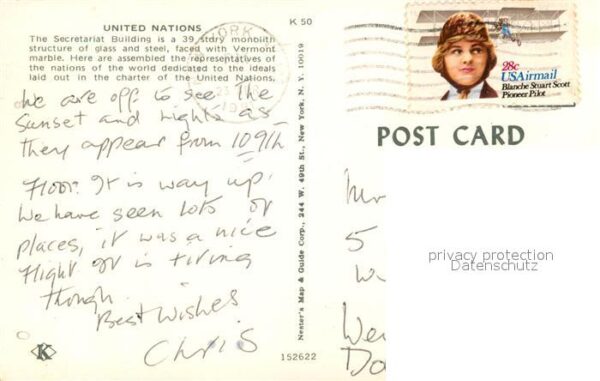 UNITED NATIONS
The Secretariat Building is a 39 story monolith
structure of glass and steel, faced with Vermont
marble. Here are assembled the representatives of
the nations of the world dedicated to the ideals
laid out in the charter of the United Nations.
We are off to see the
Sunset and Lights as
they appear from 109th
Floor. It is way up.
We have seen lots of
places, it was a nice
flight It is tiring
though.
Best Wishes
Chris
K
K 50
Nester's Map & Guide Corp., 244 W. 49th St., New York, N. Y. 10019
152622
YORK
28c
USAirmail
Blanche Stuart Scott
Pioneer Pilot
POST CARD
5
privacy protection
Datenschutz